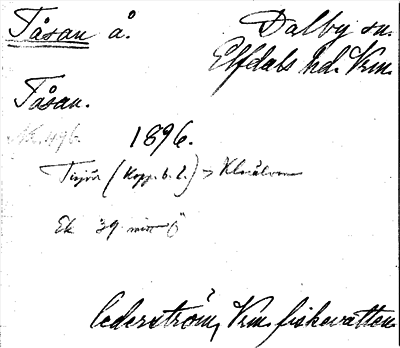 Tåsan å.
Dalby sn.
Elfdals hd. Vrm.
Tåsan.
1896.
(Kopp. b. l.) > Klarälven
Ek 39
Cederström, Vrm. fiskevatten.